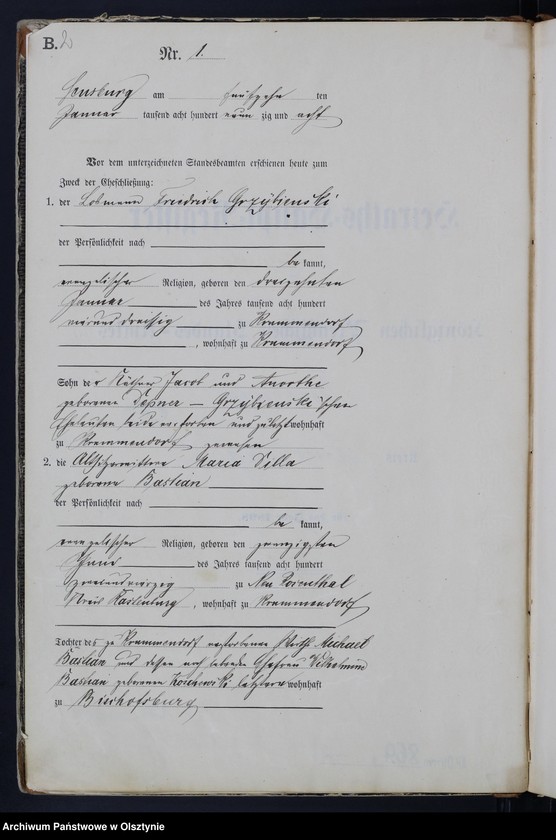 B.
Nr. 1.
Sensburg am fünfzehn ten
Januar tausend acht hundert neun zig und acht
Vor dem unterzeichneten Standesbeamten erschienen heute zum
Zweck der Eheschließung:
1. der Losmann Friedrich Grzybienski
der Persönlichkeit nach
be kannt,
evangelischer Religion, geboren den dreizehnten
Januar des Jahres tausend acht hundert
vierunddreissig zu Krummendorf
, wohnhaft zu Krummendorf
Sohn der Käthner Jacob und Anorthe
geborene Tepner – Grzybienski'schen
Eheleuten beide verstorben und zuletzt wohnhaft
zu Krummendorf gewesen
2. die Altsitzerwittwe Maria Della
geborene Bastian
der Persönlichkeit nach
be kannt,
evangelischer Religion, geboren den zwanzigsten
des Jahres tausend acht hundert
zweiundvierzig zu Neu Rosenthal
Kreis Rastenburg, wohnhaft zu Krummendorf
Tochter des zu Krummendorf verstorbenen Wirth Michael
Bastian und dessen noch lebende Ehefrau Wilhelmine
Bastian geborenen letztere wohnhaft
zu Bischofsburg
Archiwum Państwowe w Olsztynie